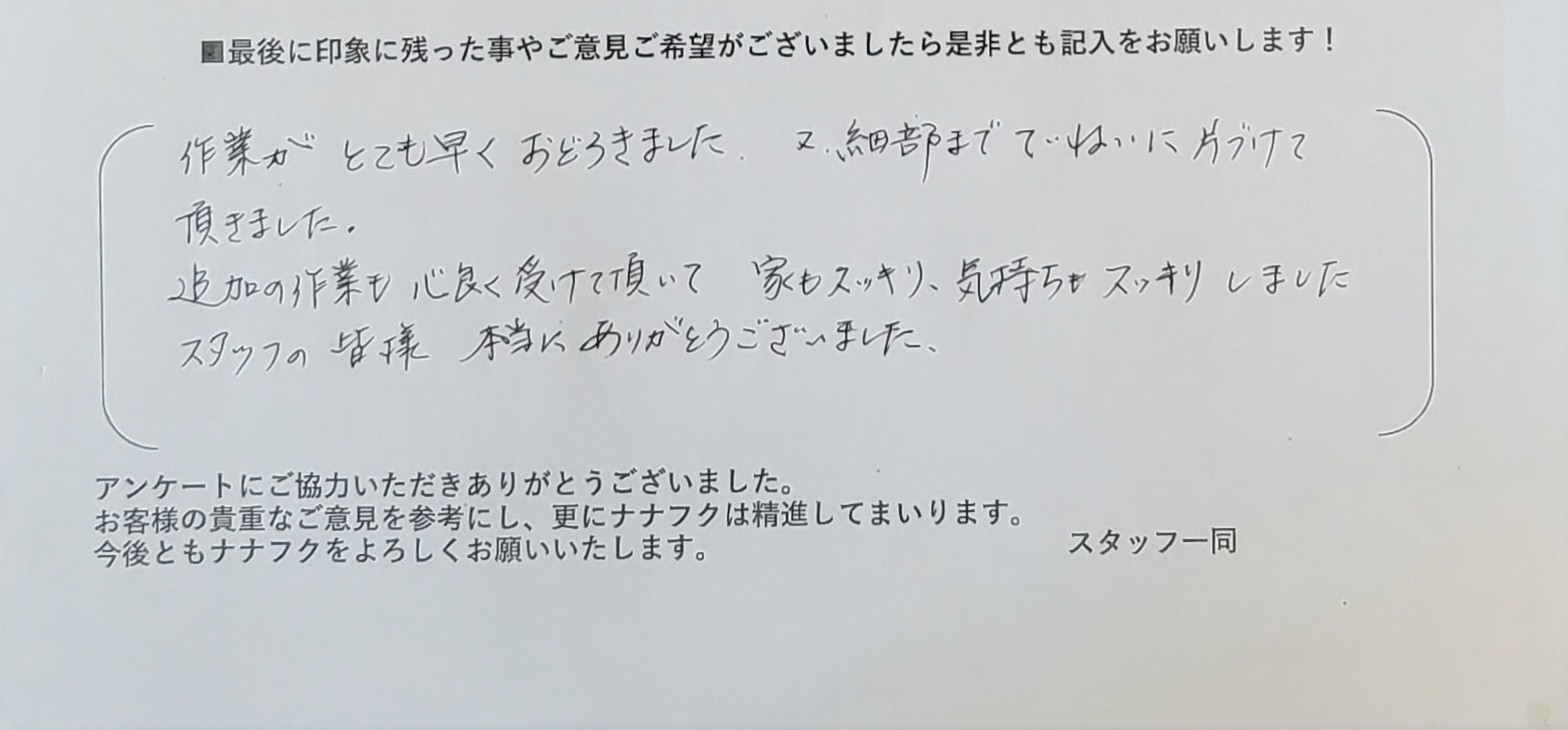 ■最後に印象に残った事やご意見ご希望がございましたら是非とも記入をお願いします！
作業が とても早く おどろきました. 又、細部まで ていねいに 片づけて
頂きました。
追加の作業も 心良く受けて頂いて 家もスッキリ、気持ちも スッキリ しました
スタッフの 皆様 本当に ありがとうございました、
アンケートにご協力いただきありがとうございました。
お客様の貴重なご意見を参考にし、更にナナフクは精進してまいります。
今後ともナナフクをよろしくお願いいたします。
スタッフ一同